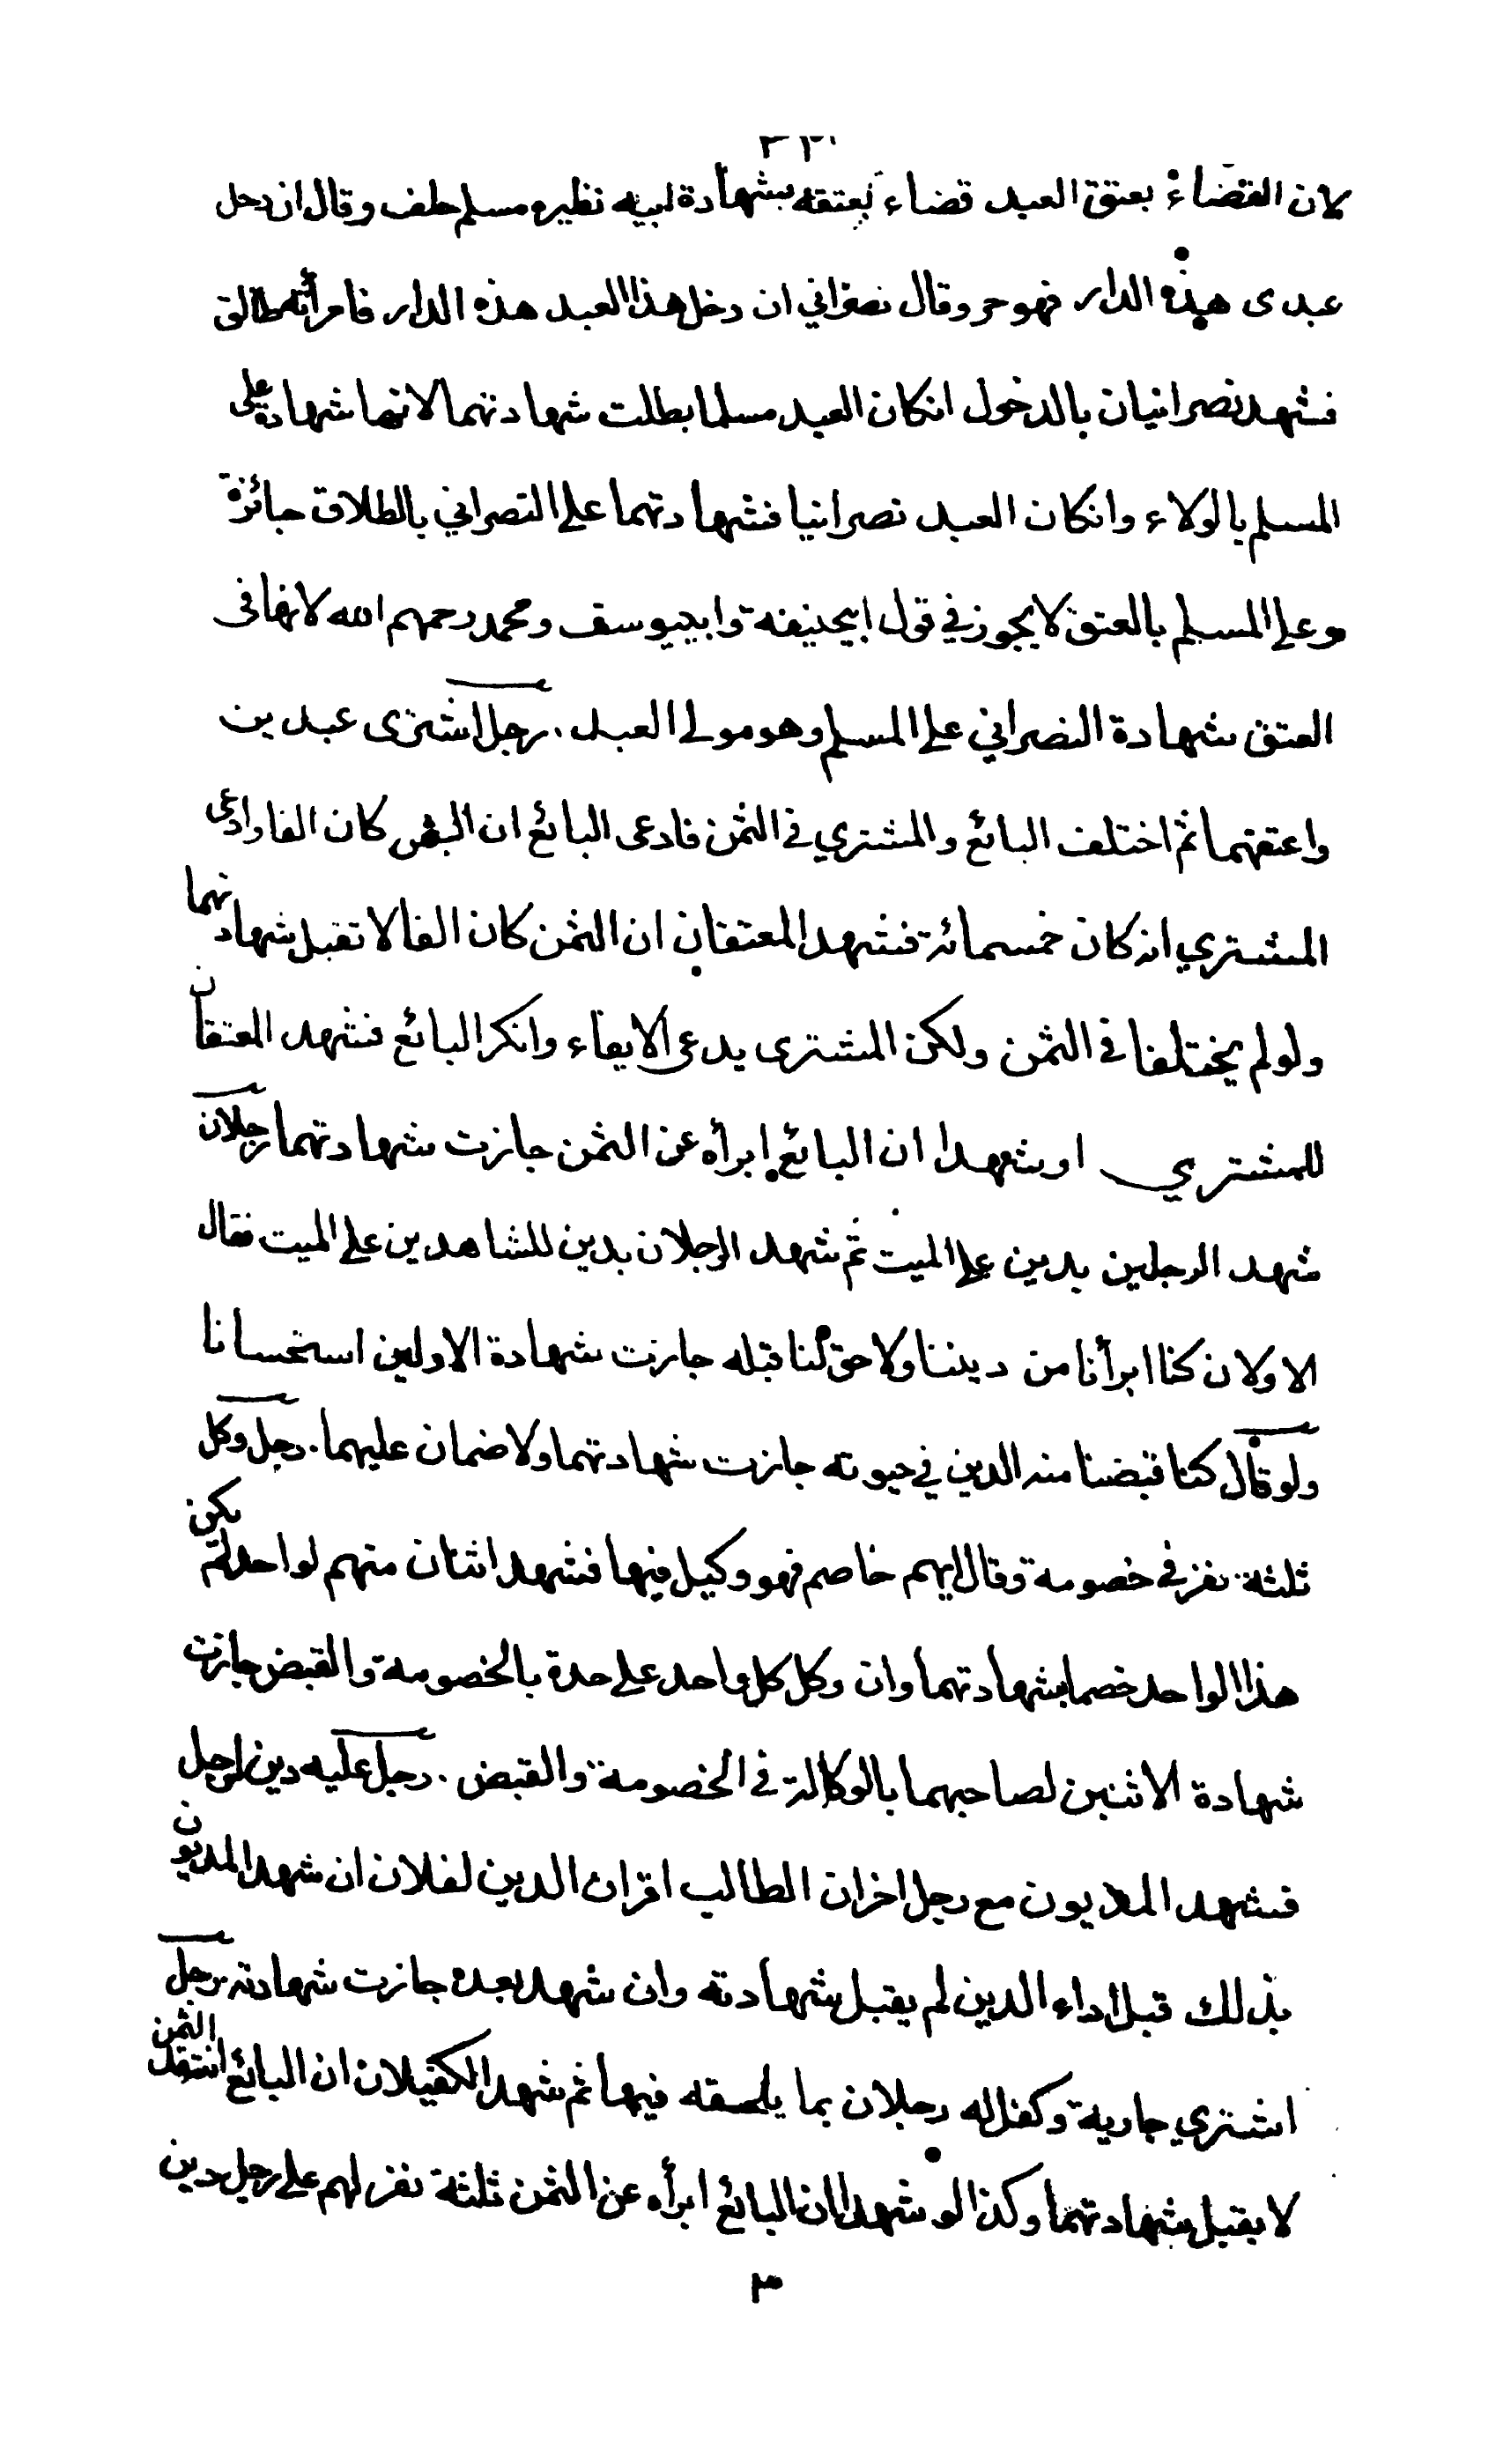 لان القضاء بعتق العبد قضاء بعتقه بشهادة ابيه نظيره مسلم حلف وقال ان دخل
عبدى هذه الدار فهو حر وقال نصراني ان دخل هذا العبد هذه الدار فامرأته طالق
فشهد نصرانيان بالدخول انكان العبد مسلما بطلت شهادتهما لانها شهادة على
المسلم بالولاء وانكان العبد نصرانيا فشهادتهما على النصراني بالطلاق جائزة
وعلى المسلم بالعتق لا يجوز في قول ابيحنيفة وابييوسف ومحمد رحمهم الله لانها في
العتق شهادة النصراني على المسلم وهو مولى العبد . رجل اشترى عبدين
واعتقهما ثم اختلف البائع والمشتري في الثمن فادعى البائع ان كان الفا وادعى
المشتري انه كان خمسمائة فشهد المعتقان ان الثمن كان الفا لا تقبل شهادتهما
ولو لم يختلفا في الثمن ولكن المشترى يدعى الايفاء وانكر البائع فشهد المعتقان
للمشتري او شهدا ان البائع ابرأه عن الثمن جازت شهادتهما رجلان
شهد الرجلين بدين على الميت ثم شهد الرجلان بدين للشاهدين على الميت فقال
الاولان كنا ابرأنا من ديننا ولا حق لنا قبله جازت شهادة الاولين استحسانا
ولو قال كنا قبضنا منه الدين في حيوته جازت شهادتهما ولا ضمان عليهما . رجل وكل
ثلثة نفر في خصومة وقال ايهم خاصم فهو وكيل فيها فشهد اثنان منهم لواحد لم يكن
هذا الواحد خصما بشهادتهما وان وكل كل واحد على حدة بالخصومة والقبض جازت
شهادة الاثنين لصاحبهما بالوكالة في الخصومة والقبض . رجل عليه دين لرجل
فشهد المديون مع رجل اخر ان الطالب اقر ان الدين لفلان ان شهد المديون
بذلك قبل اداء الدين لم يقبل شهادته وان شهد بعده جازت شهادته رجل
اشتري جارية وكفل له رجلان بما يلحقه فيها ثم شهد الكفيلان ان البائع انتقد الثمن
لا يقبل شهادتهما وكذا لو شهدا ان البائع ابرأه عن الثمن ثلثة نفر لهم على رجل دين
٣